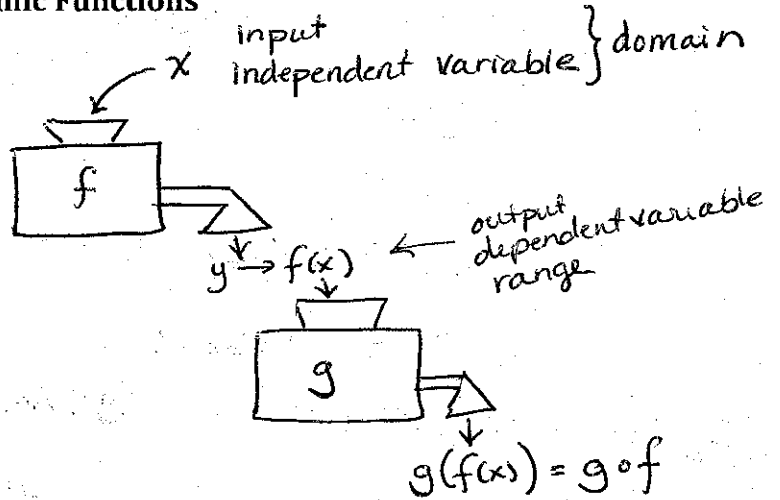 Functions
input
x independent variable } domain
f
y → f(x)
← output
dependent variable
range
g
g(f(x)) = g∘f